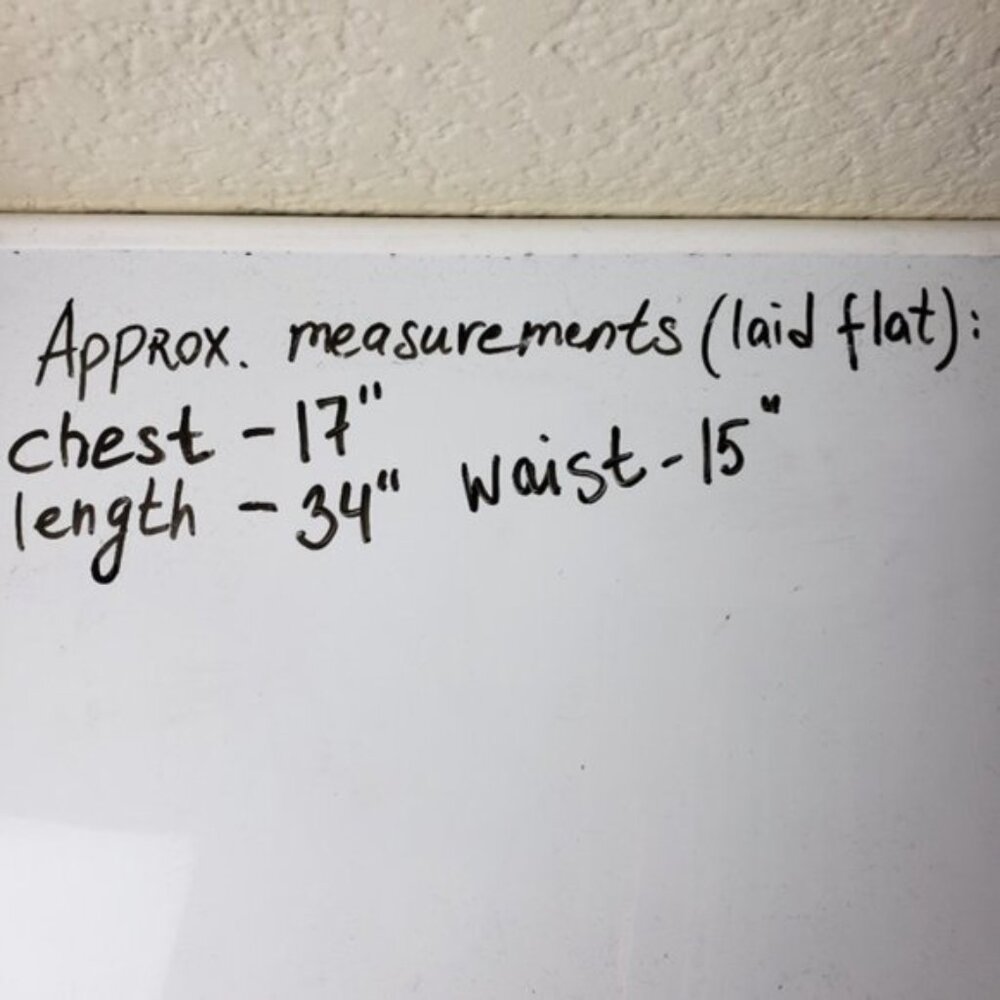 Approx. measurements (laid flat):
chest - 17"
length - 34" waist - 15"